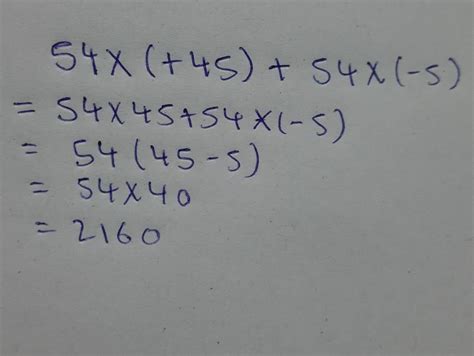 54×(+45) + 54×(-5)
= 54×45+54×(-5)
= 54(45-5)
= 54×40
= 2160